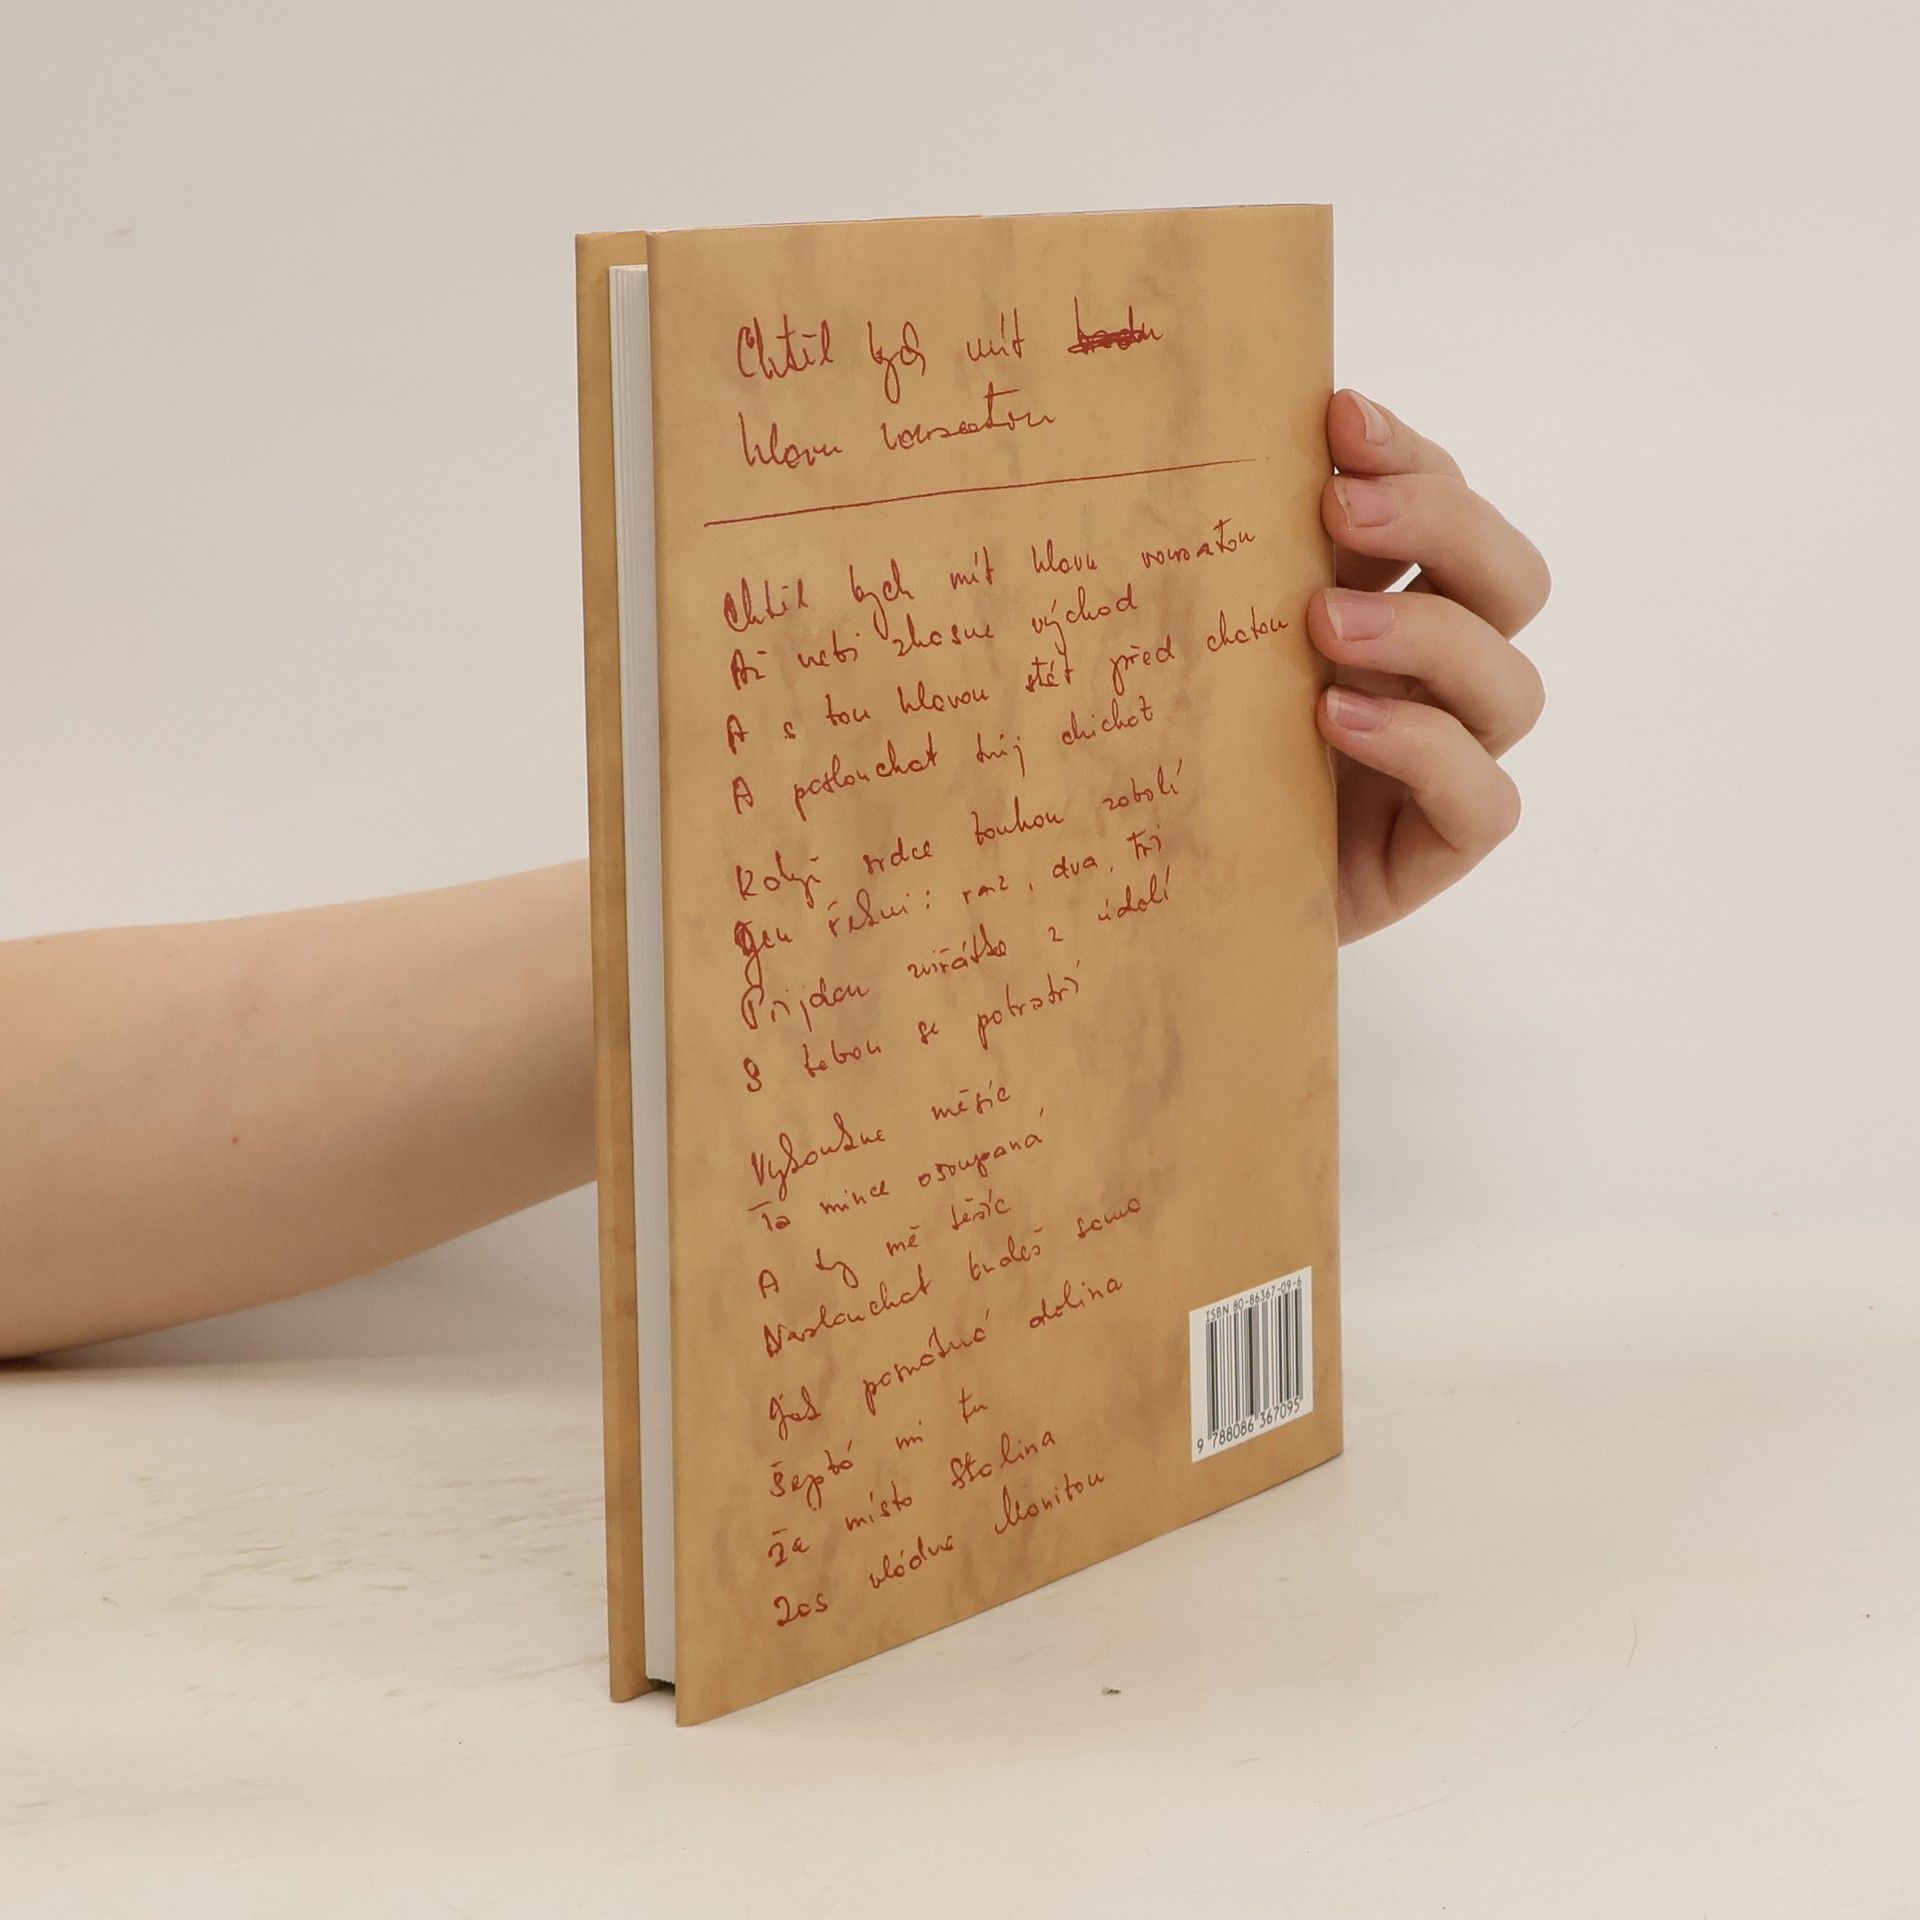 Chtěl bych mít
hlavu vousatou
Chtěl bych mít hlavu vousatou
Až nebi zhasne východ
A s tou hlavou stát před chatou
A poslouchat tvůj chichot
Když srdce touhou zabolí
Jen řekni: raz, dva, tři
Přijdou zvířátka z údolí
S tebou se potratří
Vykoukne měsíc
Ta mince osoupaná
A ty mě těšíc
Naslouchat budeš sama
Jak památná dolina
Šeptá mi tu
Že místo Stalina
Zas vládne Manitou
ISBN 80-86367-09-6
9 788086 367095